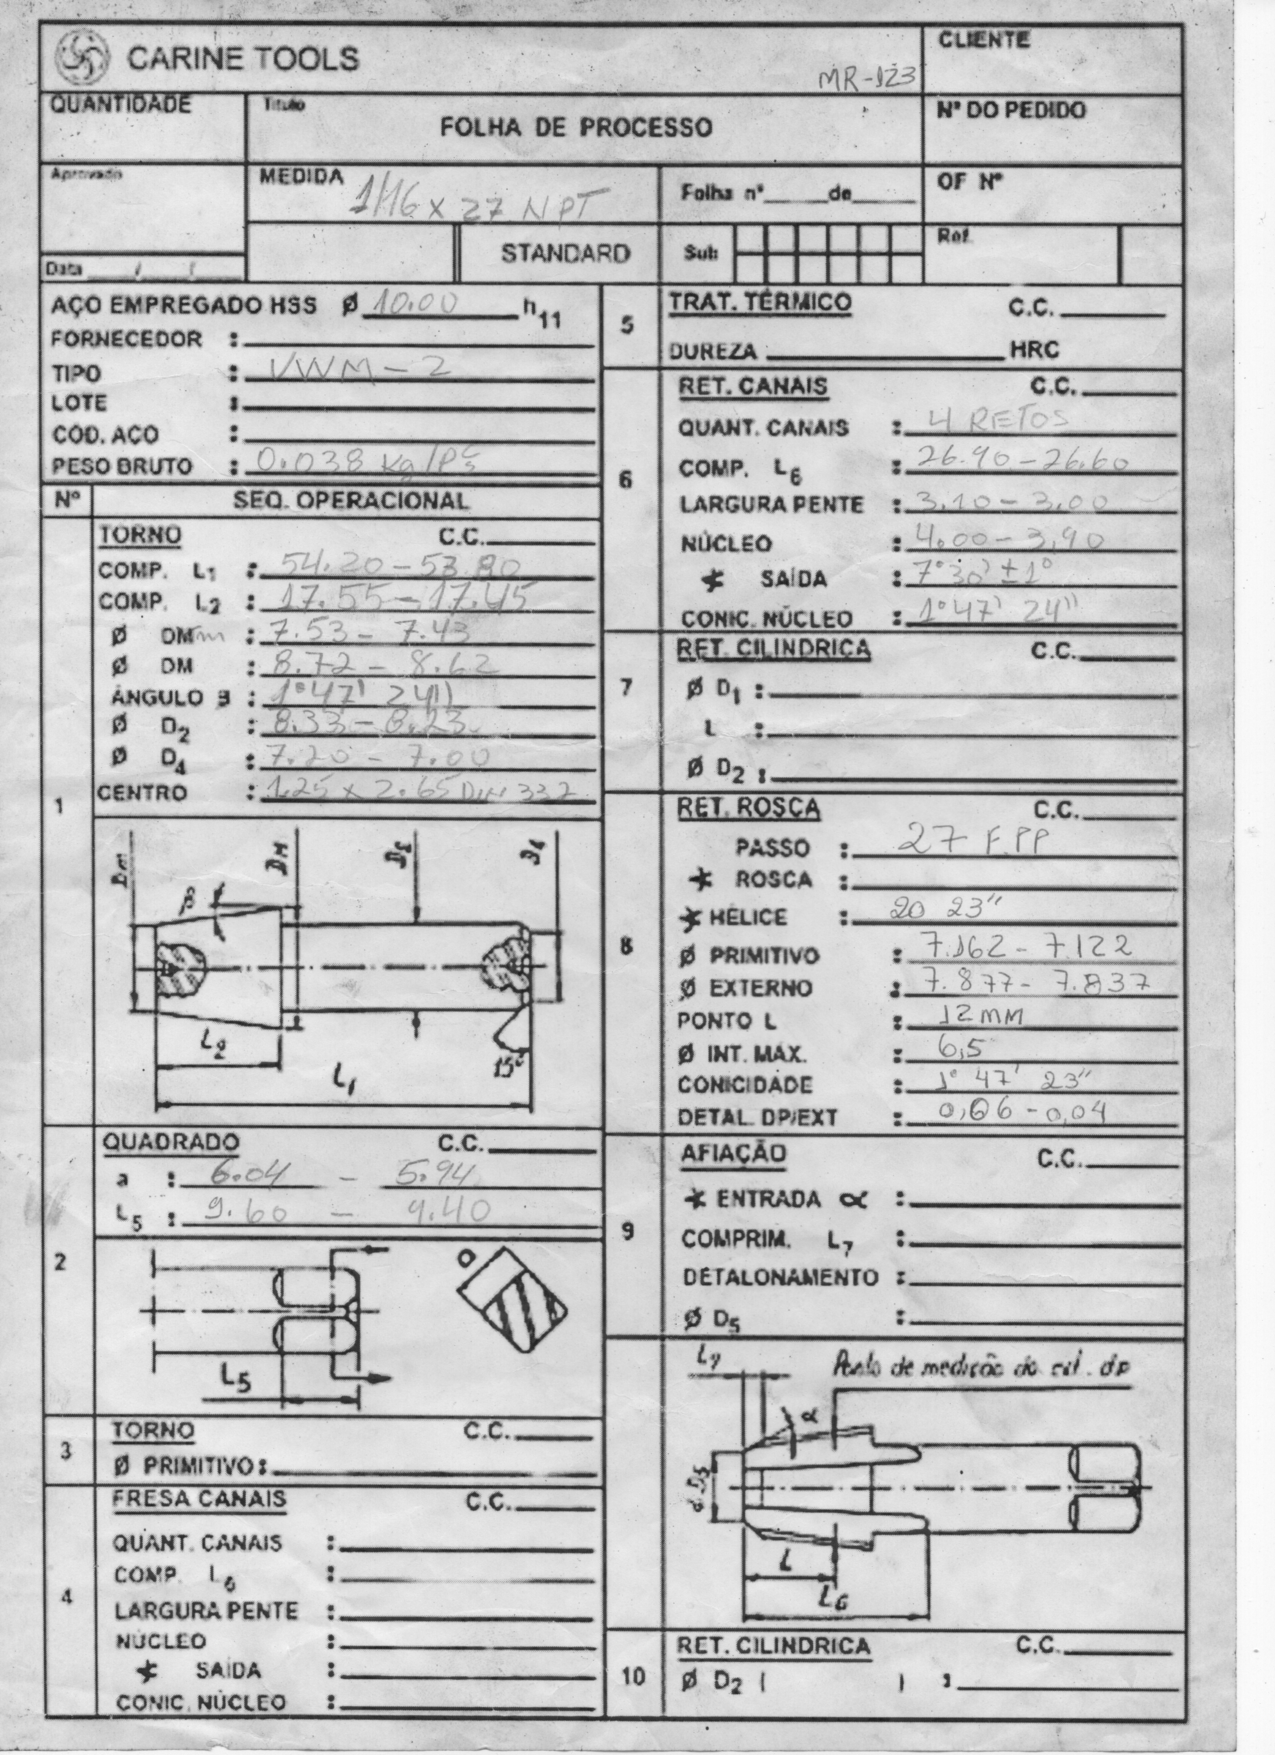 CARINE TOOLS
MR-123
CLIENTE
QUANTIDADE
Titulo
FOLHA DE PROCESSO
Nº DO PEDIDO
Aprovado
MEDIDA
1/16 x 27 NPT
Folha nº____de____
OF Nº
STANDARD
Sub
Ref.
Data __/__/__
AÇO EMPREGADO HSS Ø 10.00 h11
FORNECEDOR :
TIPO : VWM-2
LOTE :
COD. AÇO :
PESO BRUTO : 0.038 Kg/PÇ
Nº SEQ. OPERACIONAL
1
TORNO C.C.
COMP. L1 : 54.20 - 53.80
COMP. L2 : 17.55 - 17.45
Ø DMm : 7.53 - 7.43
Ø DM : 8.72 - 8.62
ÂNGULO B : 1º47' 24"
Ø D2 : 8.33 - 8.23
Ø D4 : 7.20 - 7.00
CENTRO : 1.25 x 2.65 DIN 332
Dm
β
DM
D2
L2
L1
15º
2
QUADRADO C.C.
a : 6.04 - 5.94
L5 : 9.60 - 9.40
L5
3
TORNO C.C.
Ø PRIMITIVO :
4
FRESA CANAIS C.C.
QUANT. CANAIS :
COMP. L6 :
LARGURA PENTE :
NÚCLEO :
SAÍDA :
CONIC. NÚCLEO :
5
TRAT. TÉRMICO C.C.
DUREZA HRC
6
RET. CANAIS C.C.
QUANT. CANAIS : 4 RETOS
COMP. L6 : 26.90 - 26.60
LARGURA PENTE : 3.10 - 3.00
NÚCLEO : 4.00 - 3,90
SAÍDA : 7º30' ±1º
CONIC. NÚCLEO : 1º47' 24"
7
RET. CILINDRICA C.C.
Ø D1 :
L :
Ø D2 :
8
RET. ROSCA C.C.
PASSO : 27 F.PP
ROSCA :
HÉLICE : 20 23"
Ø PRIMITIVO : 7.162 - 7.122
Ø EXTERNO : 7.877 - 7.837
PONTO L : 12 MM
Ø INT. MAX. : 6,5
CONICIDADE : 1º 47' 23"
DETAL. DP/EXT : 0,06 - 0,04
9
AFIAÇÃO C.C.
ENTRADA α :
COMPRIM. L7 :
DETALONAMENTO :
Ø D5 :
L7
Ponto de medição do cil. dp
α
d D5
L
L6
10
RET. CILINDRICA C.C.
Ø D2 ( ) :